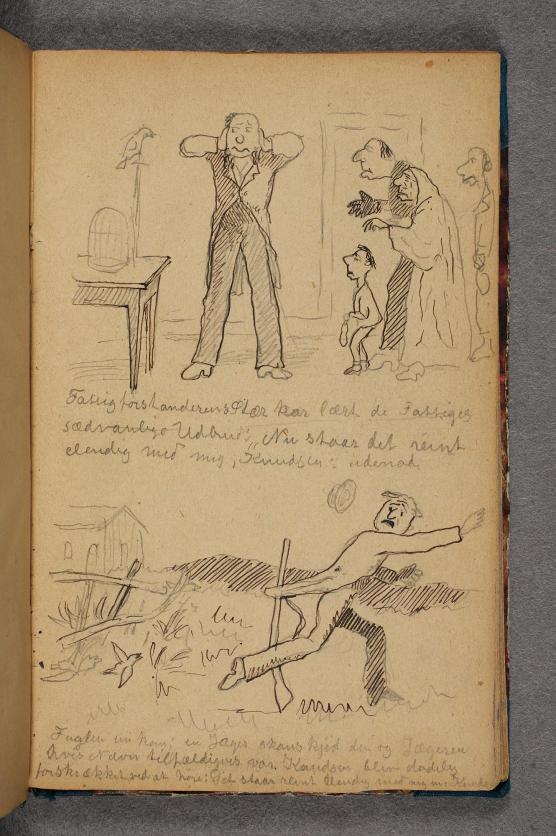 Fattigforstanderens Stær har lært de Fattiges
sædvanlige Udbrud: „Nu staar det reint
elendig med mig, Knudsen“ udenad.
Fuglen en Jæger skød den og Jægeren
hvis Navn tilfældigvis var Knudsen blev dødelig
forskrækket ved at høre: Det staar reint elendig med mig